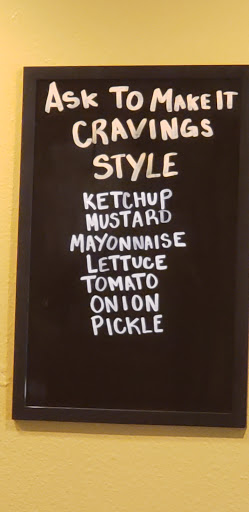 ASK TO MAKE IT
CRAVINGS
STYLE
KETCHUP
MUSTARD
MAYONNAISE
LETTUCE
TOMATO
ONION
PICKLE